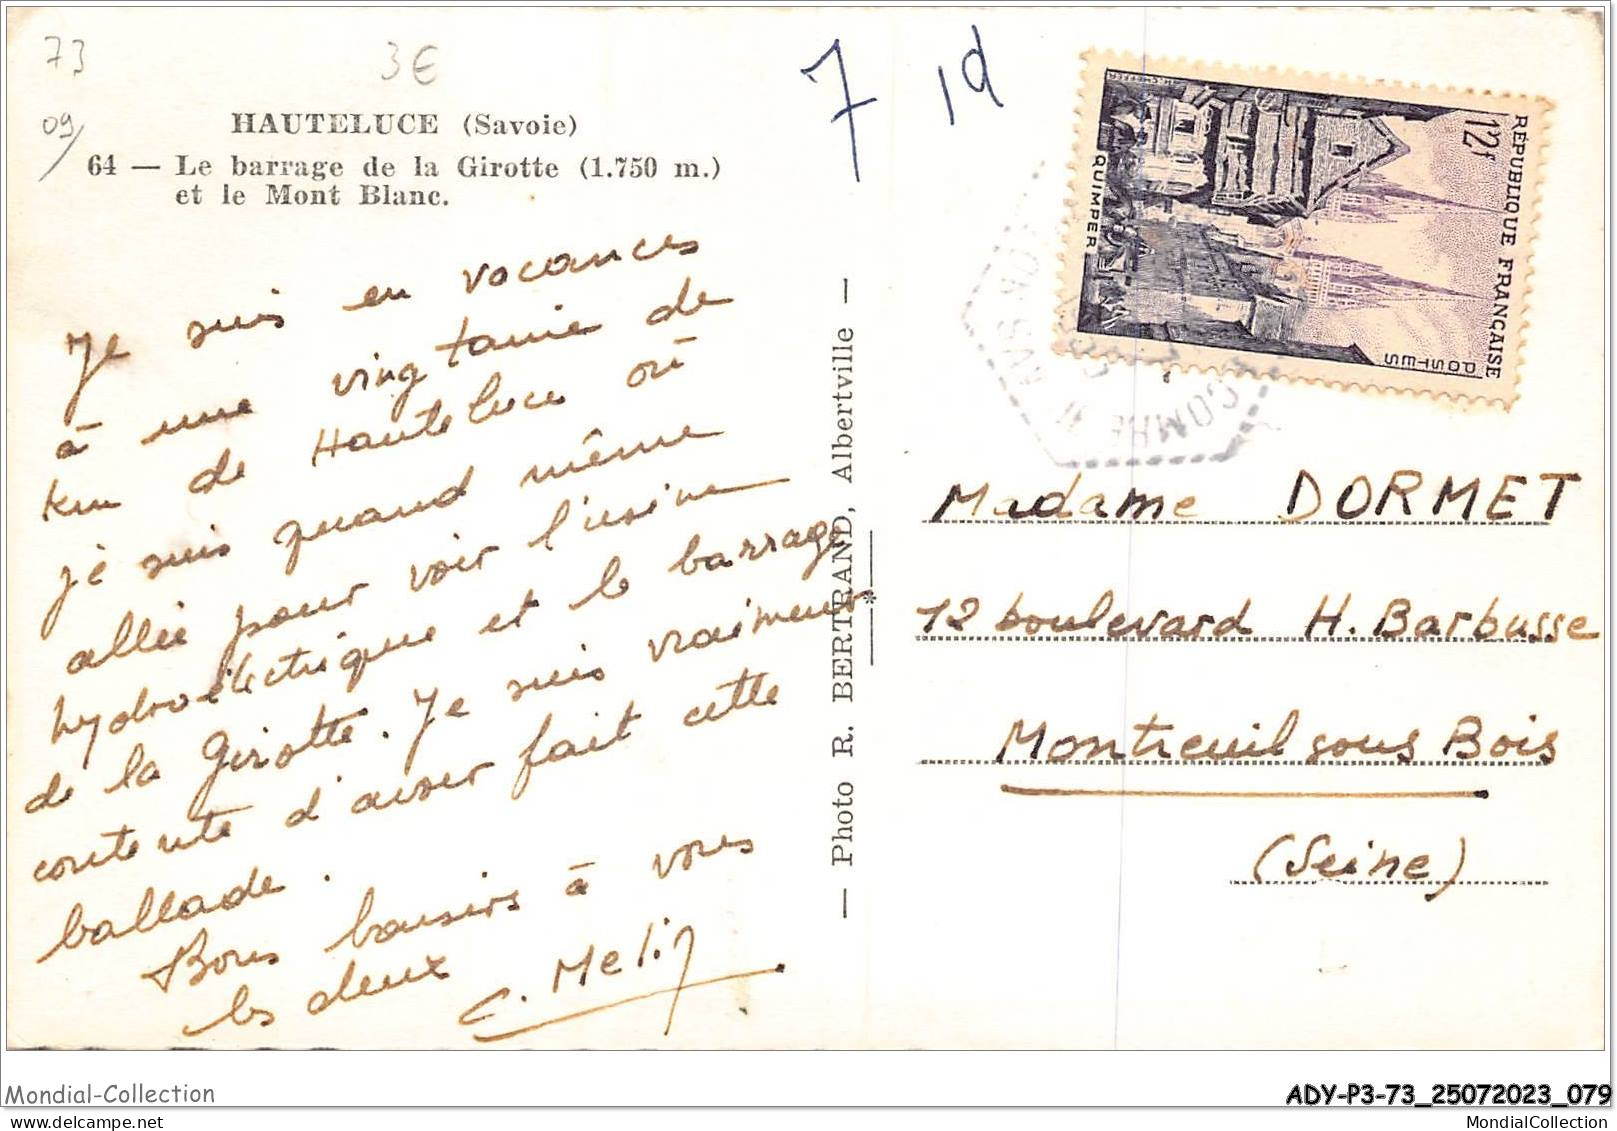 73
3€
09/
HAUTELUCE (Savoie)
64 — Le barrage de la Girotte (1.750 m.)
et le Mont Blanc.
Je suis en vacances
à une vingtaine de
km de Hauteluce où
je suis quand même
allée pour voir l'usine
hydroélectrique et le barrage
de la Girotte. Je suis vraiment
contente d'avoir fait cette
ballade.
Bons baisers à vous
les deux
C. Melin
— Photo R. BERTRAND, Albertville —
7 1d
RÉPUBLIQUE FRANÇAISE
12f
POSTES
QUIMPER
Madame DORMET
12 boulevard H. Barbusse
Montreuil sous Bois
(Seine)
Mondial-Collection
ADY-P3-73_25072023_079
MondialCollection